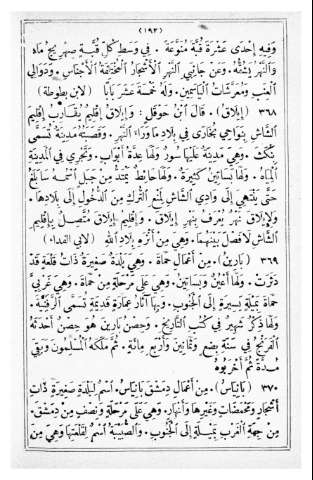 (١٩٣)
وَفِيهِ إِحْدَى عَشْرَةَ قُبَّةً مُنَوَّعَةً . فِي وَسَطِ كُلِّ قُبَّةٍ صِهْرِيجُ مَاءٍ
وَالنَّهْرُ يَشُقُّهُ . وَعَنْ جَانِبَيِ النَّهْرِ الْأَشْجَارُ الْمُخْتَلِفَةُ الْأَجْنَاسِ . وَدَوَالِي
الْعِنَبِ وَمُعَرَّشَاتُ الْيَاسَمِينِ . وَلَهُ خَمْسَةَ عَشَرَ بَابًا (لابن بطوطة)
٣٦٨ (إِيلَاقُ) . قَالَ ابْنُ حَوْقَلٍ : وَإِيلَاقُ إِقْلِيمٌ يُقَارِبُ إِقْلِيمَ
الشَّاشِ بِنَوَاحِي بُخَارَى فِي بِلَادِ مَا وَرَاءَ النَّهْرِ . وَقَصَبَتُهُ مَدِينَةٌ تُسَمَّى
تَنْكَتَ . وَهِيَ مَدِينَةٌ عَلَيْهَا سُورٌ وَلَهَا عِدَّةُ أَبْوَابٍ . وَتَجْرِي فِي الْمَدِينَةِ
الْمِيَاهُ . وَلَهَا بَسَاتِينُ كَثِيرَةٌ . وَلَهَا حَائِطٌ يَمْتَدُّ مِنْ جَبَلٍ اسْمُهُ سَابَلْغُ
حَتَّى يَنْتَهِيَ إِلَى وَادِي الشَّاشِ لِمَنْعِ التُّرْكِ مِنَ الدُّخُولِ إِلَى بِلَادِهَا .
وَلِإِيلَاقَ نَهْرٌ يُعْرَفُ بِنَهْرِ إِيلَاقَ . وَإِقْلِيمُ إِيلَاقَ مُتَّصِلٌ بِإِقْلِيمِ
الشَّاشِ لَا فَصْلَ بَيْنَهُمَا . وَهِيَ مِنْ أَنْزَهِ بِلَادِ اللهِ (لابي الفداء)
٣٦٩ (بَارِينُ) . مِنْ أَعْمَالِ حَمَاةَ . وَهِيَ بَلْدَةٌ صَغِيرَةٌ ذَاتُ قَلْعَةٍ قَدْ
دَثَرَتْ . وَلَهَا أَعْيُنٌ وَبَسَاتِينُ . وَهِيَ عَلَى مَرْحَلَةٍ مِنْ حَمَاةَ . وَهِيَ غَرْبِيَّ
حَمَاةَ بِمَيْلَةٍ يَسِيرَةٍ إِلَى الْجَنُوبِ . وَبِهَا آثَارُ عِمَارَةٍ قَدِيمَةٍ تُسَمَّى الرَّفَنِيَّةَ .
وَلَهَا ذِكْرٌ شَهِيرٌ فِي كُتُبِ التَّارِيخِ . وَحِصْنُ بَارِينَ هُوَ حِصْنٌ أَحْدَثَهُ
الْفِرَنْجُ فِي سَنَةِ بِضْعٍ وَثَمَانِينَ وَأَرْبَعِ مِائَةٍ . ثُمَّ مَلَكَهُ الْمُسْلِمُونَ وَبَقِيَ
مُدَّةً ثُمَّ أَخْرَبُوهُ
٣٧٠ (بَانِيَاسُ) . مِنْ أَعْمَالِ دِمَشْقَ بَانِيَاسُ . اسْمٌ لِبَلْدَةٍ صَغِيرَةٍ ذَاتِ
أَشْجَارٍ وَمُحَمَّضَاتٍ وَغَيْرِهَا وَأَنْهَارٍ . وَهِيَ عَلَى مَرْحَلَةٍ وَنِصْفٍ مِنْ دِمَشْقَ .
مِنْ جِهَةِ الْغَرْبِ بِمَيْلَةٍ إِلَى الْجَنُوبِ . وَالصُّبَيْبَةُ اسْمٌ لِقَلْعَتِهَا وَهِيَ مِنَ